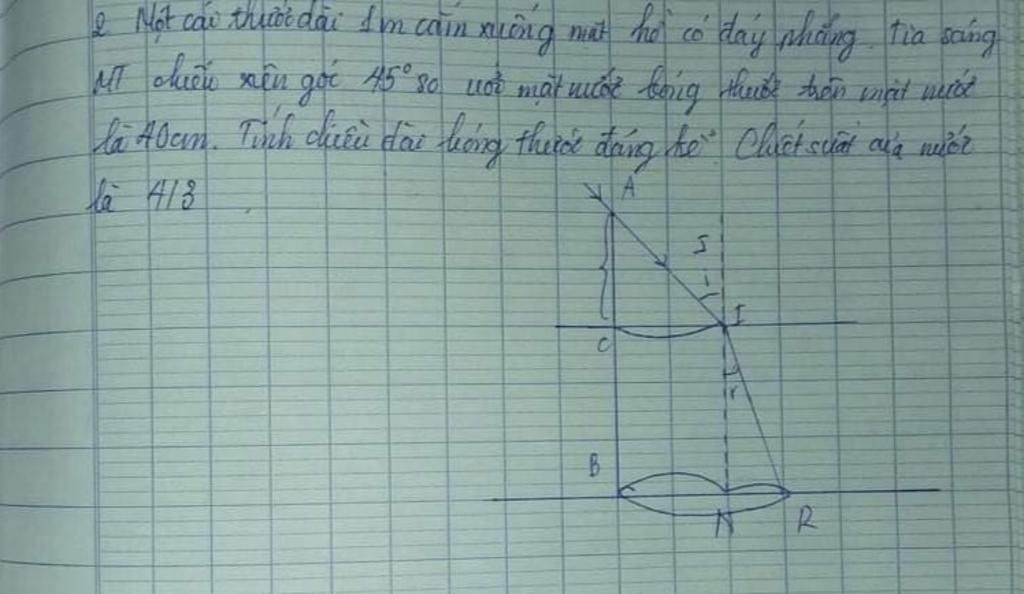 2 Một cái thước dài 1m cắm xuống mặt hồ có đáy phẳng. Tia sáng
MT chiếu xiên góc 45° so với mặt nước bóng thước trên mặt nước
là 40cm. Tính chiều dài bóng thước đáng kể. Chiết suất của nước
là 4/3
A
S
I
C
r
B
N
R